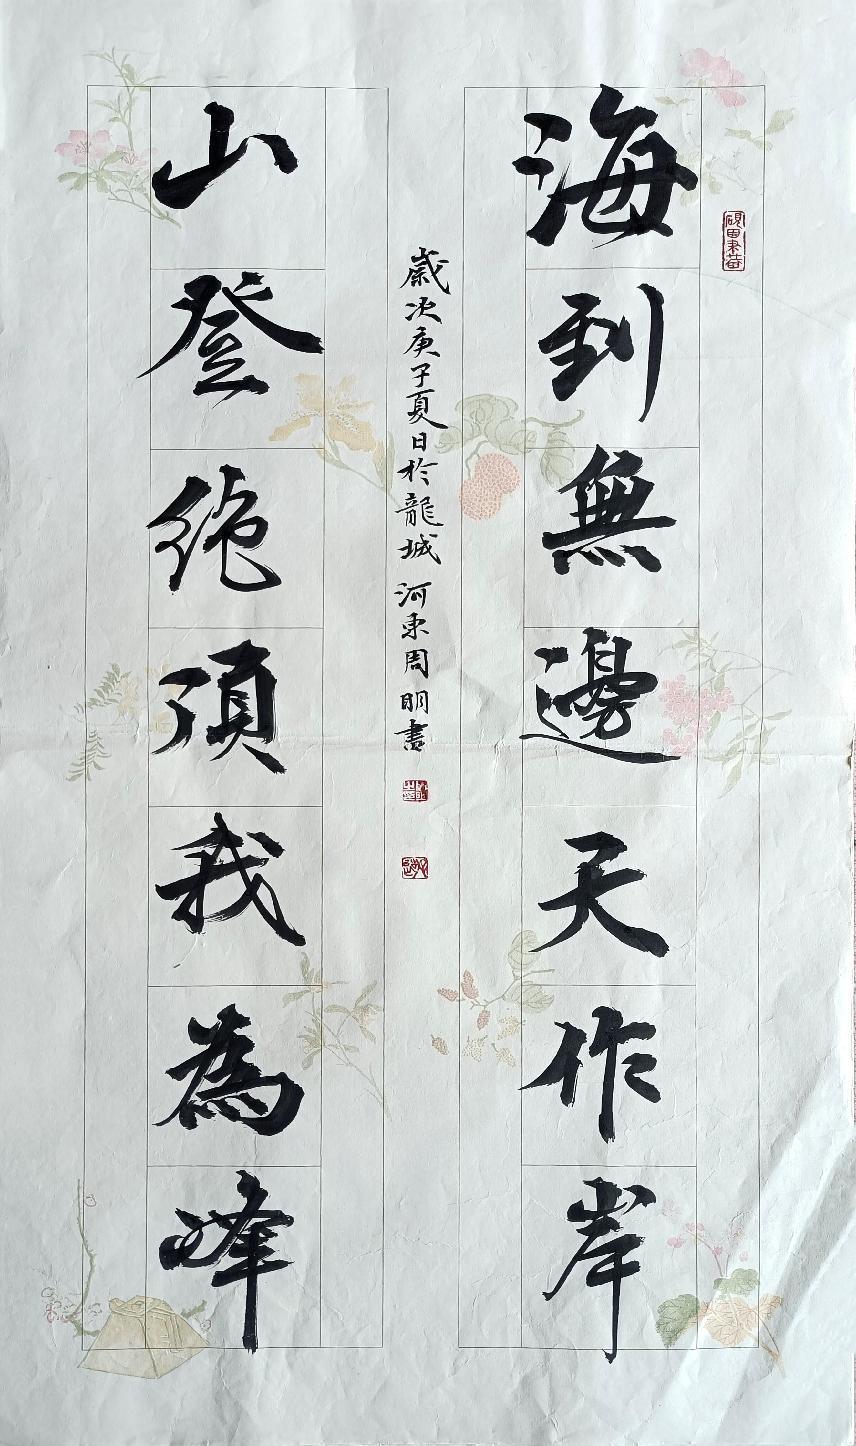 海到無邊天作岸
山登絶頂我為峰
歲次庚子夏日於龍城 河東周明書